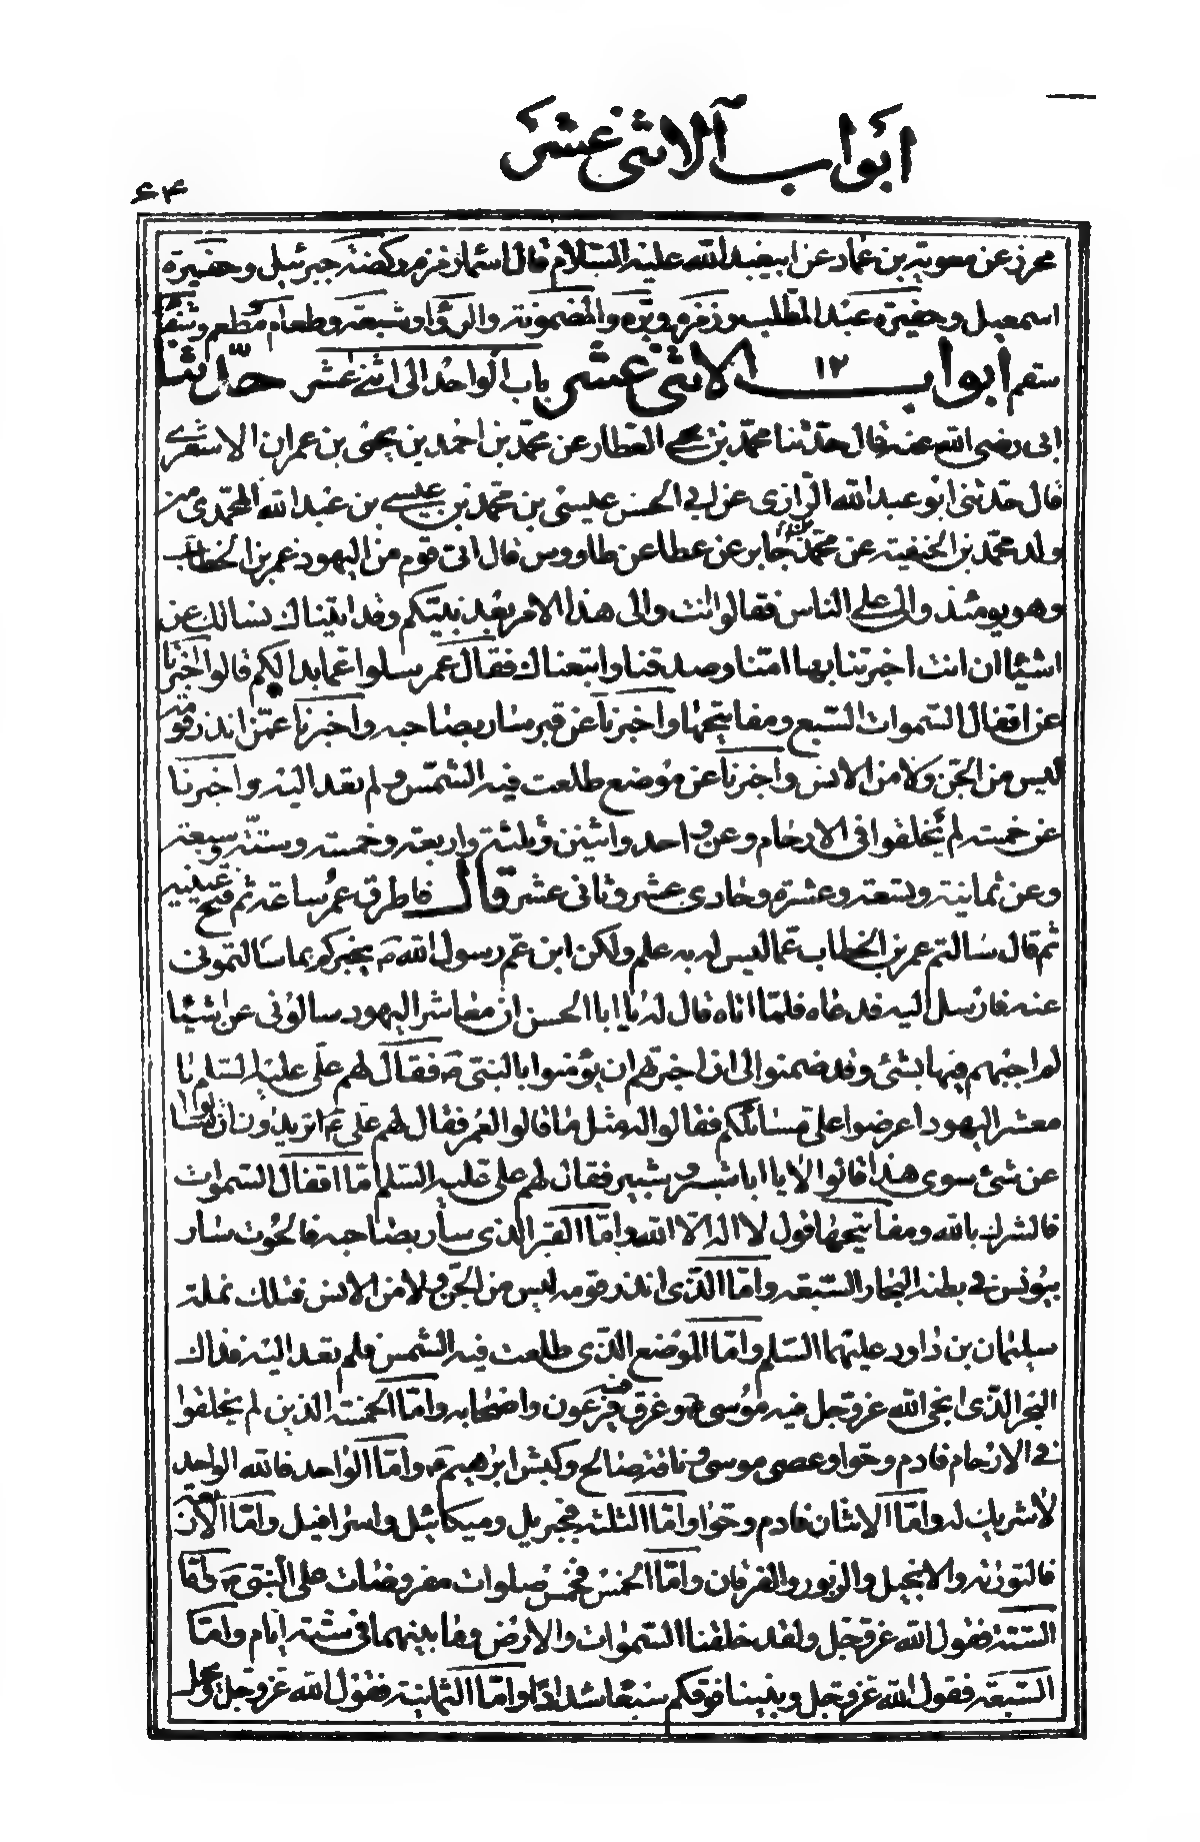 ابواب الاثنى عشر
۶۴
محرز عن معوية بن عمار عن ابيعبد الله عليه السلام قال اسماء زمزم ركضة جبرئيل وحفيرة
اسمعيل وحفيرة عبد المطلب وزمزم وبرة والمضمونة والروا وشبعة وطعام مطعم وشفاء
سقم ابواب الاثنى عشر ١٢ باب الواحد الى اثنى عشر حدثنا
ابى رضى الله عنه قال حدثنا محمد بن يحيى العطار عن محمد بن احمد بن يحيى بن عمران الاشعرى
قال حدثنى ابو عبد الله الرازى عن ابى الحسن عيسى بن محمد بن عيسى بن عبد الله المحمدى من
ولد محمد بن الحنفية عن محمد بن جابر عن عطا عن طاووس قال اتى قوم من اليهود عمر بن الخطاب
وهو يومئذ والى على الناس فقالوا انت والى هذا الامر بعد نبيكم وقد اتيناك نسالك عن
اشيئا ان انت اخبرتنا بها امنا وصدقنا واتبعناك فقال عمر سلوا عما بدا لكم قالوا اخبرنا
عن اقفال السموات السبع ومفاتيحها واخبرنا عن قبر سار بصاحبه واخبرنا عمن انذر قومه
ليس من الجن ولا من الانس واخبرنا عن موضع طلعت فيه الشمس ولم تعد اليه واخبرنا
عن خمسة لم يخلقوا فى الارحام وعن واحد واثنين وثلثة واربعة وخمسة وستة وسبعة
وعن ثمانية وتسعة وعشرة وحادى عشر وثانى عشر قال فاطرق عمر ساعة ثم فتح عينيه
ثم قال سالتم عمر بن الخطاب عما ليس له به علم ولكن ابن عم رسول الله ص يخبركم بما سالتمونى
عنه فارسل اليه فدعاه فلما اتاه قال له يا ابا الحسن ان معاشر اليهود سالونى عن شيئا
لم اجبهم فيها بشئ وقد ضمنوا لى ان اخبرتهم ان يؤمنوا بالنبى ص فقال لهم على عليه السلم يا
معشر اليهود اعرضوا على مسائلكم فقالوا له مثل ما قالوا لعمر فقال لهم على ع اتريدون ان تسالوا
عن شئ سوى هذا قالوا لا يا ابا شبر وشبير فقال لهم على عليه السلم اما اقفال السموات
فالشرك بالله ومفاتيحها قول لا اله الا الله واما القبر الذى سار بصاحبه فالحوت سار
بيونس فى بطنه البحار السبعة واما الذى انذر قومه ليس من الجن ولا من الانس فتلك نملة
سليمان بن داود عليهما السلم واما الموضع الذى طلعت فيه الشمس فلم تعد اليه فذاك
البحر الذى انجى الله عز وجل فيه موسى ع وغرق فيه فرعون واصحابه واما الخمسة الذين لم يخلقوا
فى الارحام فادم وحوا وعصى موسى وناقة صالح وكبش ابرهيم ع واما الواحد فالله الواحد
لا شريك له واما الاثنان فادم وحوا واما الثلثة فجبريل وميكائيل واسرافيل واما الاربعة
فالتورية والانجيل والزبور والفرقان واما الخمس فخمس صلوات مفروضات على النبى ص واما
الستة فقول الله عز وجل ولقد خلقنا السموات والارض وما بينهما فى ستة ايام واما
السبعة فقول الله عز وجل وبنينا فوقكم سبعا شدادا واما الثمانية فقول الله عز وجل ويحمل